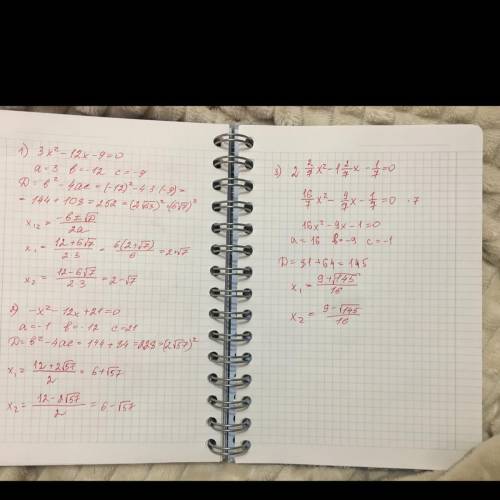 1) 3x² - 12x - 9 = 0
a = 3 b = -12 c = -9
D = b² - 4ac = (-12)² - 4·3·(-9) =
= 144 + 108 = 252 = (6√7)²
x₁₂ = (-b ± √D)/2a
x₁ = (12 + 6√7)/2·3 = 6(2+√7)/6 = 2+√7
x₂ = (12 - 6√7)/2·3 = 2 - √7
2) -x² - 12x + 21 = 0
a = -1 b = -12 c = 21
D = b² - 4ac = 144 + 84 = 228 = (2√57)²
x₁ = (12 + 2√57)/2 = 6 + √57
x₂ = (12 - 2√57)/2 = 6 - √57
3) 2 2/7 x² - 1 2/7 x - 1/7 = 0
16/7 x² - 9/7 x - 1/7 = 0 ·7
16x² - 9x - 1 = 0
a = 16 b = -9 c = -1
D = 81 + 64 = 145
x₁ = (9 + √145)/16
x₂ = (9 - √145)/16